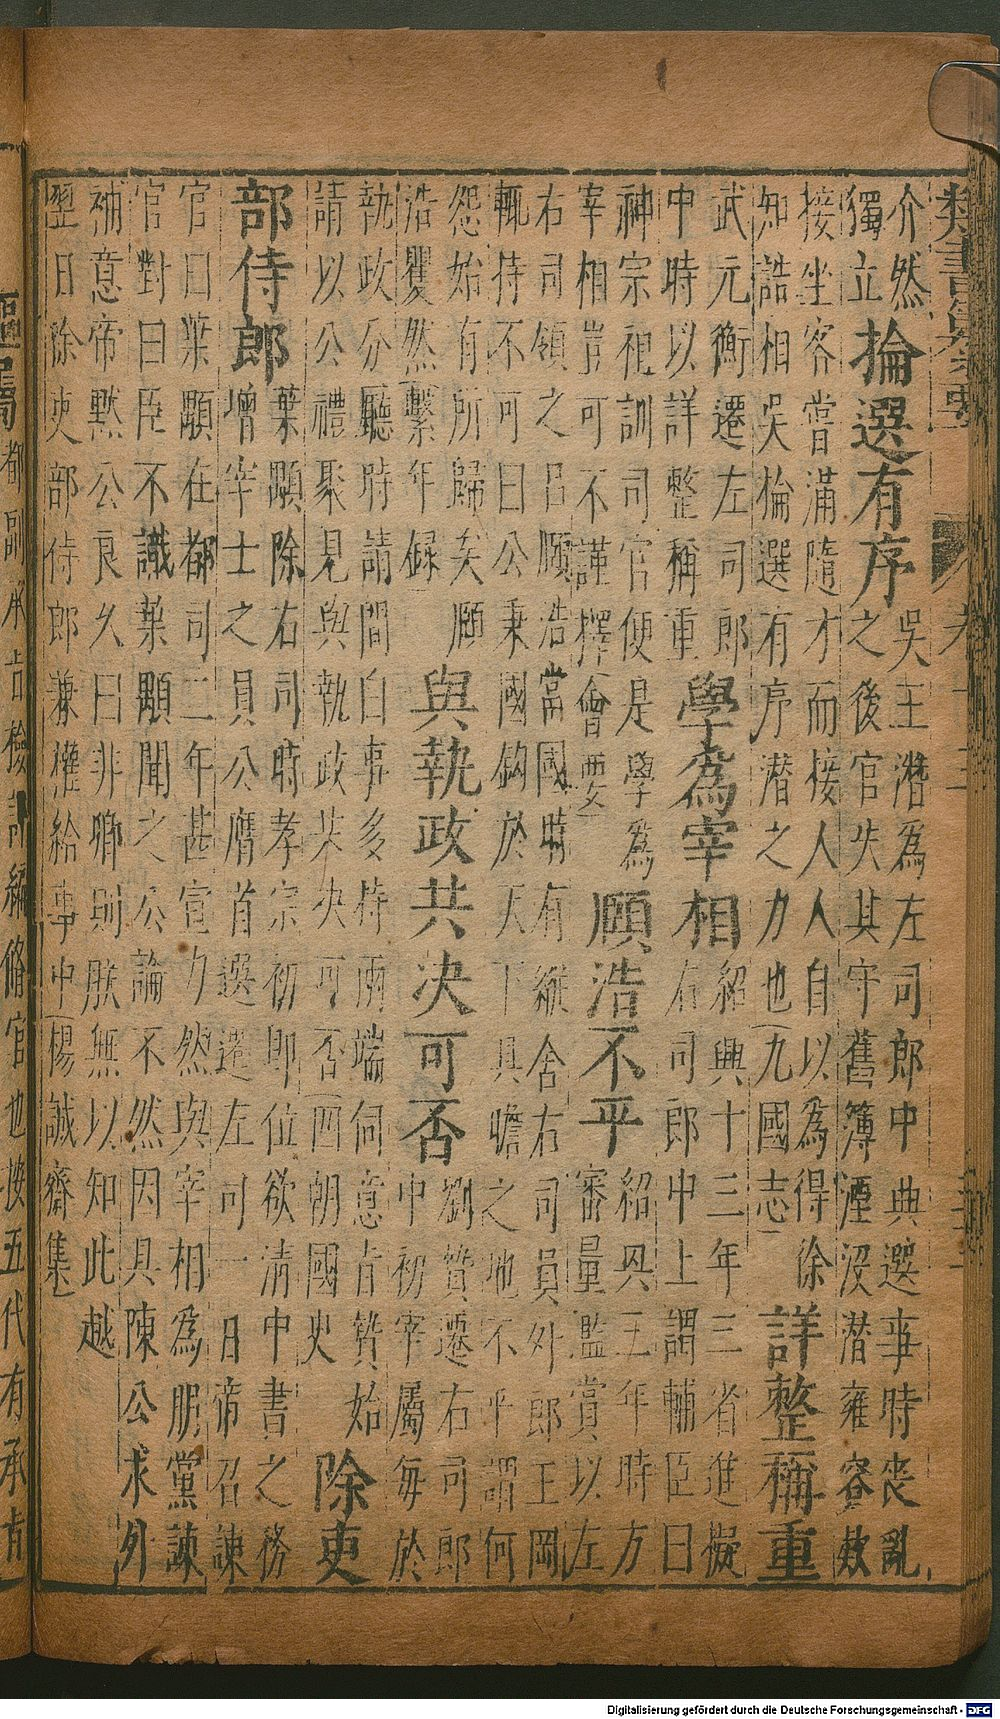 類書纂要 卷十三
介然
獨立
掄選有序
吳王潛為左司郎中典選事時喪亂
之後官失其守舊簿湮没潜雍容敘
接坐客嘗滿隨才而接人人自以為得徐
知誥相吳掄選有序潜之力也九國志
詳整稱重
武元衡遷左司郎
中時以詳整稱重
學為宰相
紹興十三年三省進擬
右司郎中上謂輔臣曰
神宗視訓司官便是學為
宰相豈可不謹擇會要
頤浩不平
紹興五年時方
審量濫賞以左
右司領之呂頤浩當國時有縱舍右司員外郎王岡
輒持不可曰公秉國鈞於天下具瞻之地不平謂何
怨始有所歸矣頤
浩矍然繫年録
與執政共决可否
劉贊遷右司郎
中初宰屬每於
執政分廳時請間白事多持兩端伺意旨贊始
請以公禮聚見與執政共决可否四朝國史
除吏
部侍郎
葉顒除右司時孝宗初即位欲清中書之務
增宰士之員公膺首選遷左司一日帝召諫
官曰葉顒在都司二年甚宣力然與宰相為朋黨諫
官對曰臣不識葉顒聞之公論不然因具陳公求外
補意帝黙公良久曰非卿則朕無以知此越
翌日除吏部侍郎兼權給事中楊誠齋集
樞屬 都副承旨檢詳編脩官也按五代有承旨
Digitalisierung gefördert durch die Deutsche Forschungsgemeinschaft - DFG